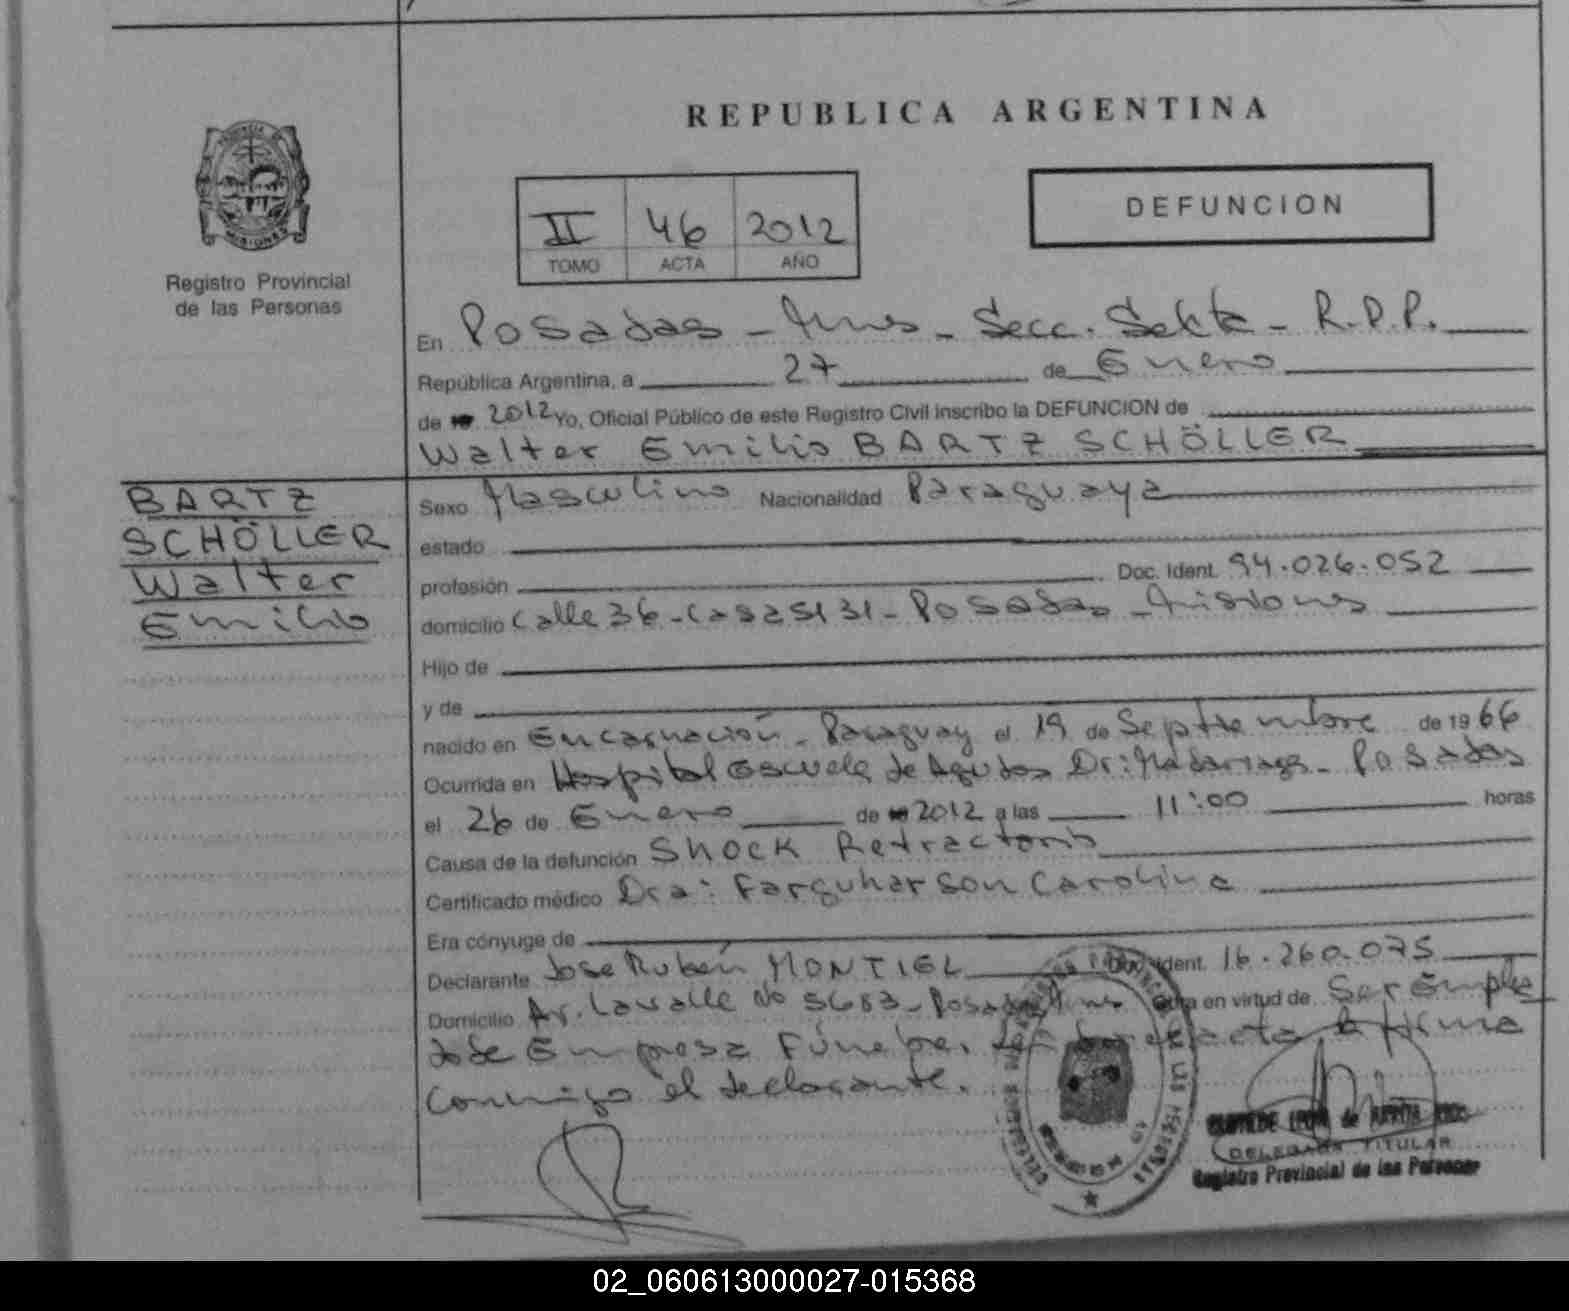 REPUBLICA ARGENTINA
PROVINCIA DE
MISIONES
Registro Provincial
de las Personas
II 46 2012
TOMO ACTA AÑO
DEFUNCION
En Posadas - Mnes - Secc. Sexta - R.P.P.
República Argentina, a 27 de Enero
de 2012 Yo, Oficial Público de este Registro Civil inscribo la DEFUNCION de
Walter Emilio BARTZ SCHÖLLER
BARTZ
SCHÖLLER
Walter
Emilio
Sexo Masculino Nacionalidad Paraguaya
estado
profesión Doc. Ident. 94.026.052
domicilio Calle 36 - Casa 5131 - Posadas - Misiones
Hijo de
y de
nacido en Encarnación - Paraguay el 19 de Septiembre de 1966
Ocurrida en Hospital Escuela de Agudos Dr: Madariaga - Posadas
el 26 de Enero de 2012 a las 11:00 horas
Causa de la defunción Shock Refractario
Certificado médico Dra: Farquharson Carolina
Era cónyuge de
Declarante Jose Rubén MONTIEL Doc. Ident. 16.260.075
Domicilio Av. Lavalle No 5683 - Posadas Mnes Obra en virtud de Ser Emplea
do de Empresa Fúnebre. acta la firma
conmigo el declarante.
DELEGADA TITULAR
Registro Provincial de las Personas
02_060613000027-015368